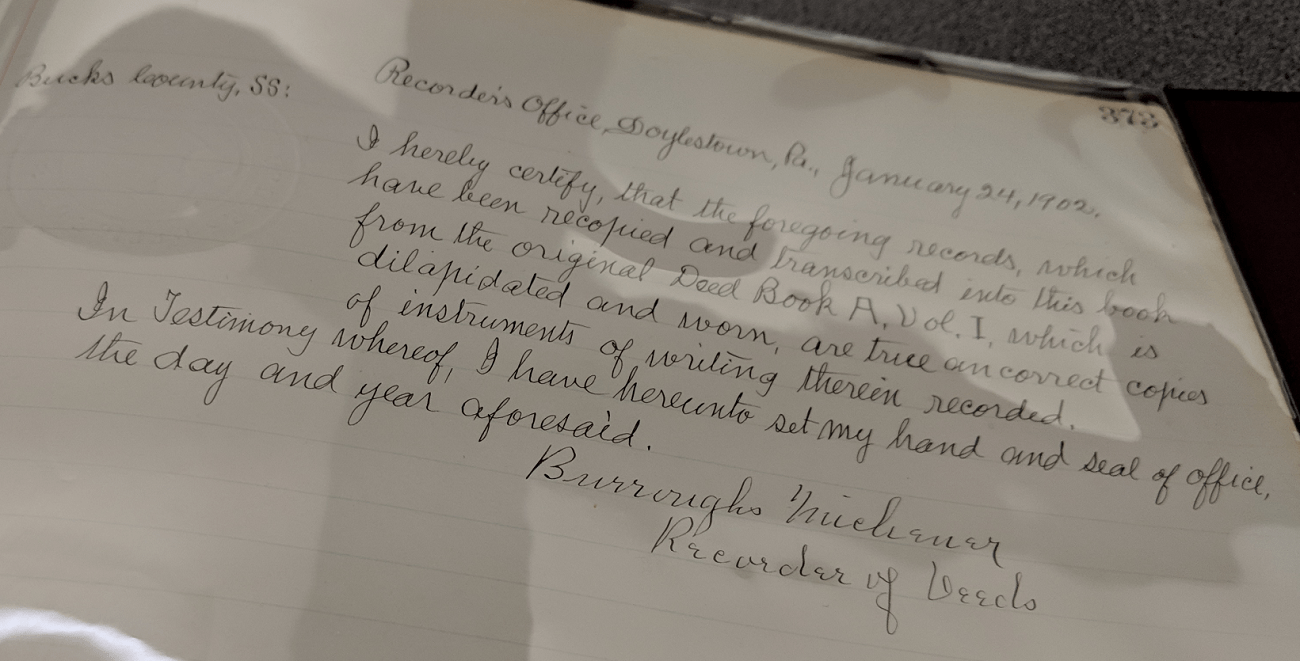 373
Bucks County, SS:
Recorder's Office, Doylestown, Pa., January 24, 1902.
I hereby certify, that the foregoing records, which
have been recopied and transcribed into this book
from the original Deed Book A, Vol. I, which is
dilapidated and worn, are true an correct copies
of instruments of writing therein recorded.
In Testimony whereof, I have hereunto set my hand and seal of office,
the day and year aforesaid.
Burroughs Michener
Recorder of Deeds